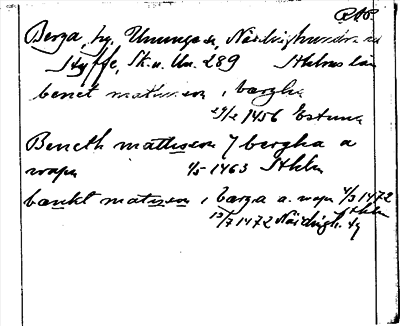 RAP.
Berga, by, Ununge sn, Närdinghundra hd
Styffe, Sk. u. Un. 289 Sthlms län
benct matisson i bærgha
29/2 1456 Estuna
Beneth mattisson i bergha a
wapn 4/5 1463 Sthlm
bænkt matisson i bærga a. wapn 4/3 1472
Sthlm
13/7 1472 Närdingh. hg